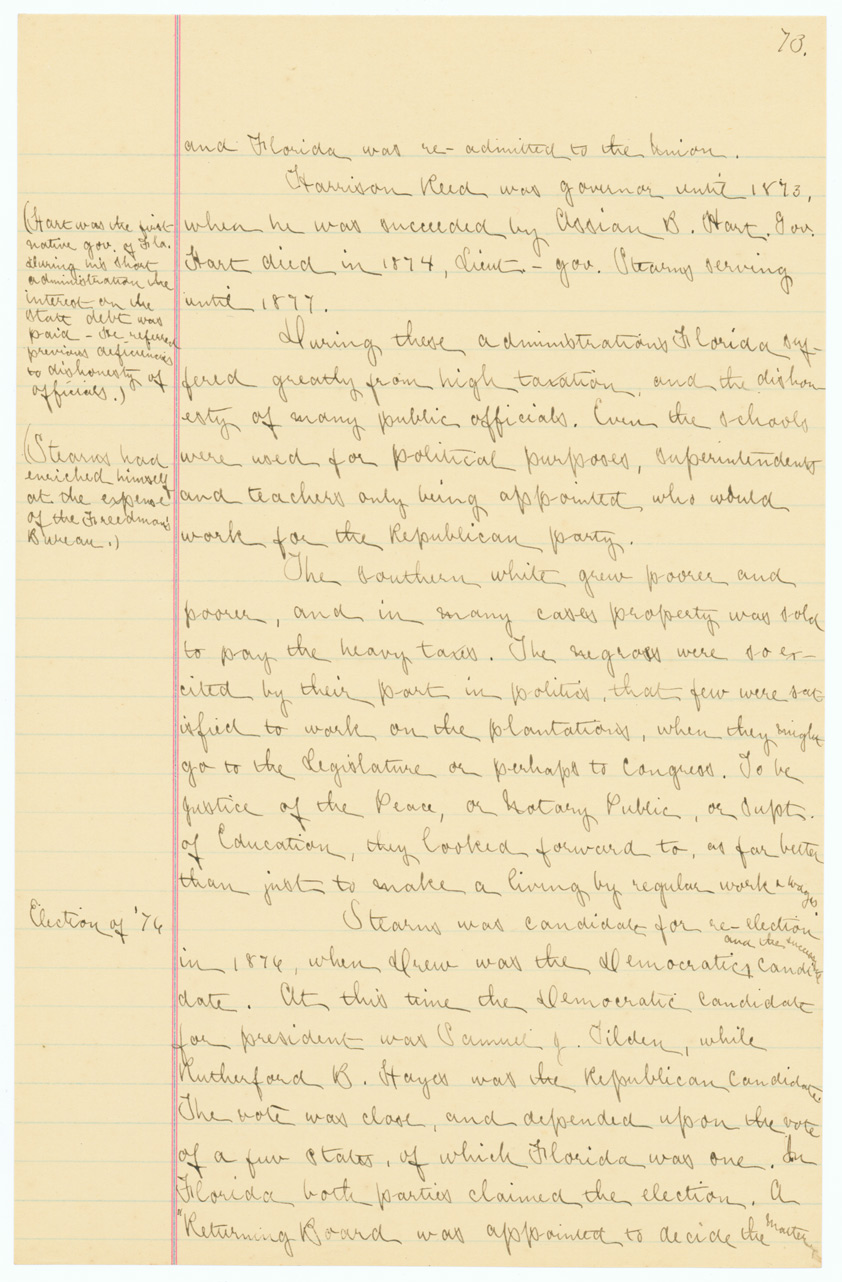 73.
and Florida was re-admitted to the Union.
Harrison Reed was governor until 1873,
when he was succeeded by Ossian B. Hart. Gov.
Hart died in 1874, Lieut.-gov. Stearns serving
until 1877.
(Hart was the first
native gov. of Fla.
During his short
administration the
interest on the
state debt was
paid - He referred
previous deficiencies
to dishonesty of
officials.)
During these administrations Florida suf-
fered greatly from high taxation, and the dishon
esty of many public officials. Even the schools
were used for political purposes, superintendents
and teachers only being appointed who would
work for the Republican party.
(Stearns had
enriched himself
at the expense
of the Freedman's
Bureau.)
The southern white grew poorer and
poorer, and in many cases property was sold
to pay the heavy taxes. The negroes were so ex-
cited by their part in politics, that few were sat
isfied to work on the plantations, when they might
go to the Legislature or perhaps to Congress. To be
Justice of the Peace, or Notary Public, or Supt.
of Education, they looked forward to, as far better
than just to make a living by regular work & wages
Election of '76
Stearns was candidate for re-election
and the
in 1876, when Drew was the Democratic candi
date. At this time the Democratic candidate
for president was Samuel J. Tilden, while
Rutherford B. Hayes was the Republican candidate.
The vote was close, and depended upon the vote
of a few states, of which Florida was one. In
Florida both parties claimed the election. A
"Returning Board was appointed to decide the matter